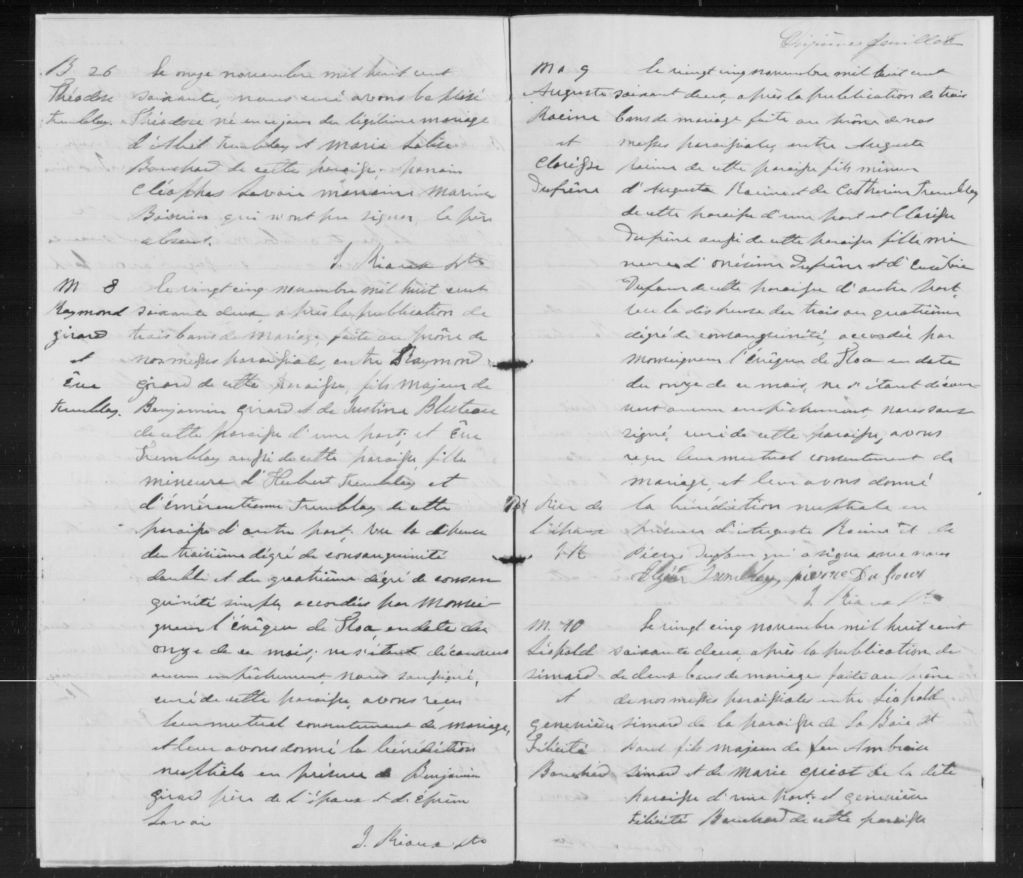 B. 26
Théodose
tremblay.
Le onze novembre mil huit cent
soixante, nous curé avons baptisé
Théodose né en ce jour du légitime mariage
Tremblay et Marie
Bouchard de cette paroisse. parrain
Cléophas Savoie marraine Marine
qui n'ont pu signer, le père
absent.
J. Ptre
M 8
Raymond
girard
et
Ève
tremblay.
Le vingt cinq novembre mil huit cent
soixante deux, après la publication de
trois bans de mariage faite au prône de
nos messes paroissiales, entre Raymond
girard de cette paroisse, fils majeur de
Benjamin girard et de Justine Bluteau
de cette paroisse d'une part, et Ève
Tremblay aussi de cette paroisse, fille
mineure d'Hubert Tremblay et
d'émérentienne Tremblay de cette
paroisse d'autre part, vu la dispense
du troisième dégré de consanguinité
double et du quatrième dégré de consan
guinité simple accordées par Monsei
gneur l'évêque de Tloa en date du
onze de ce mois, ne s'étant découvert
aucun empêchement, nous soussigné,
curé de cette paroisse, avons reçu
leur mutuel consentement de mariage,
et leur avons donné la bénédiction
nuptiale en présence de Benjamin
girard père de l'époux et d'éphrem
Savoie
J. Ptre
feuillet
M. 9
Auguste
Racine
et
Clarisse
Dufrêne
Le vingt cinq novembre mil huit cent
soixante deux, après la publication de trois
bans de mariage faite au prône de nos
messes paroissiales, entre Auguste
Racine de cette paroisse fils mineur
d'Auguste Racine et de Catherine Tremblay
de cette paroisse d'une part et Clarisse
Dufrêne aussi de cette paroisse fille mi
neure d'onésime Dufrêne et d'
Dufour de cette paroisse d'autre part,
vu la dispense du trois au quatrième
dégré de consanguinité, accordée par
Monseigneur l'évêque de Tloa en date
du onze de ce mois, ne s'étant décou
vert aucun empêchement nous sous
signé, curé de cette paroisse, avons
reçu leur mutuel consentement de
mariage, et leur avons donné
la bénédiction nuptiale en
présence d'Auguste Racine et de
Pierre Dufour qui a signé avec nous
Père de
l'époux
Tremblay, pierre Dufour
J. Ptre
M. 10
Léopold
simard
et
geneviève
félicité
Bouchard
Le vingt cinq novembre mil huit cent
soixante deux, après la publication de
de deux bans de mariage faite au prône
de nos messes paroissiales entre Léopold
simard de la paroisse de la Baie St
Paul fils majeur de feu Ambroise
simard et de Marie de la dite
paroisse d'une part, et geneviève
félicité Bouchard de cette paroisse